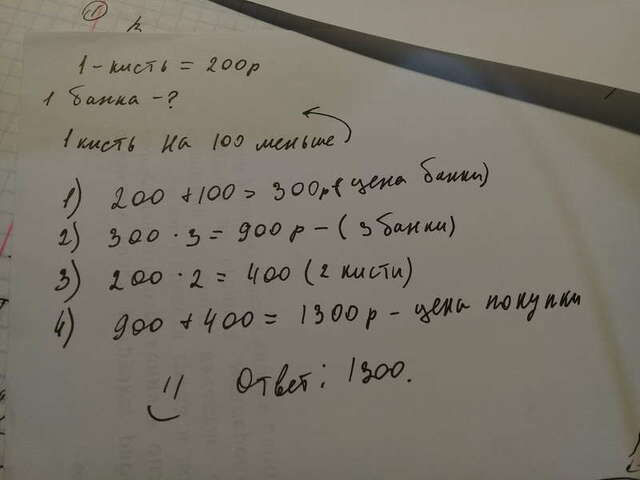 1 - кисть = 200р
1 банка - ?
1 кисть на 100 меньше
1) 200 + 100 = 300р (цена банки)
2) 300 · 3 = 900 р - (3 банки)
3) 200 · 2 = 400 (2 кисти)
4) 900 + 400 = 1300 р - цена покупки
Ответ: 1300.